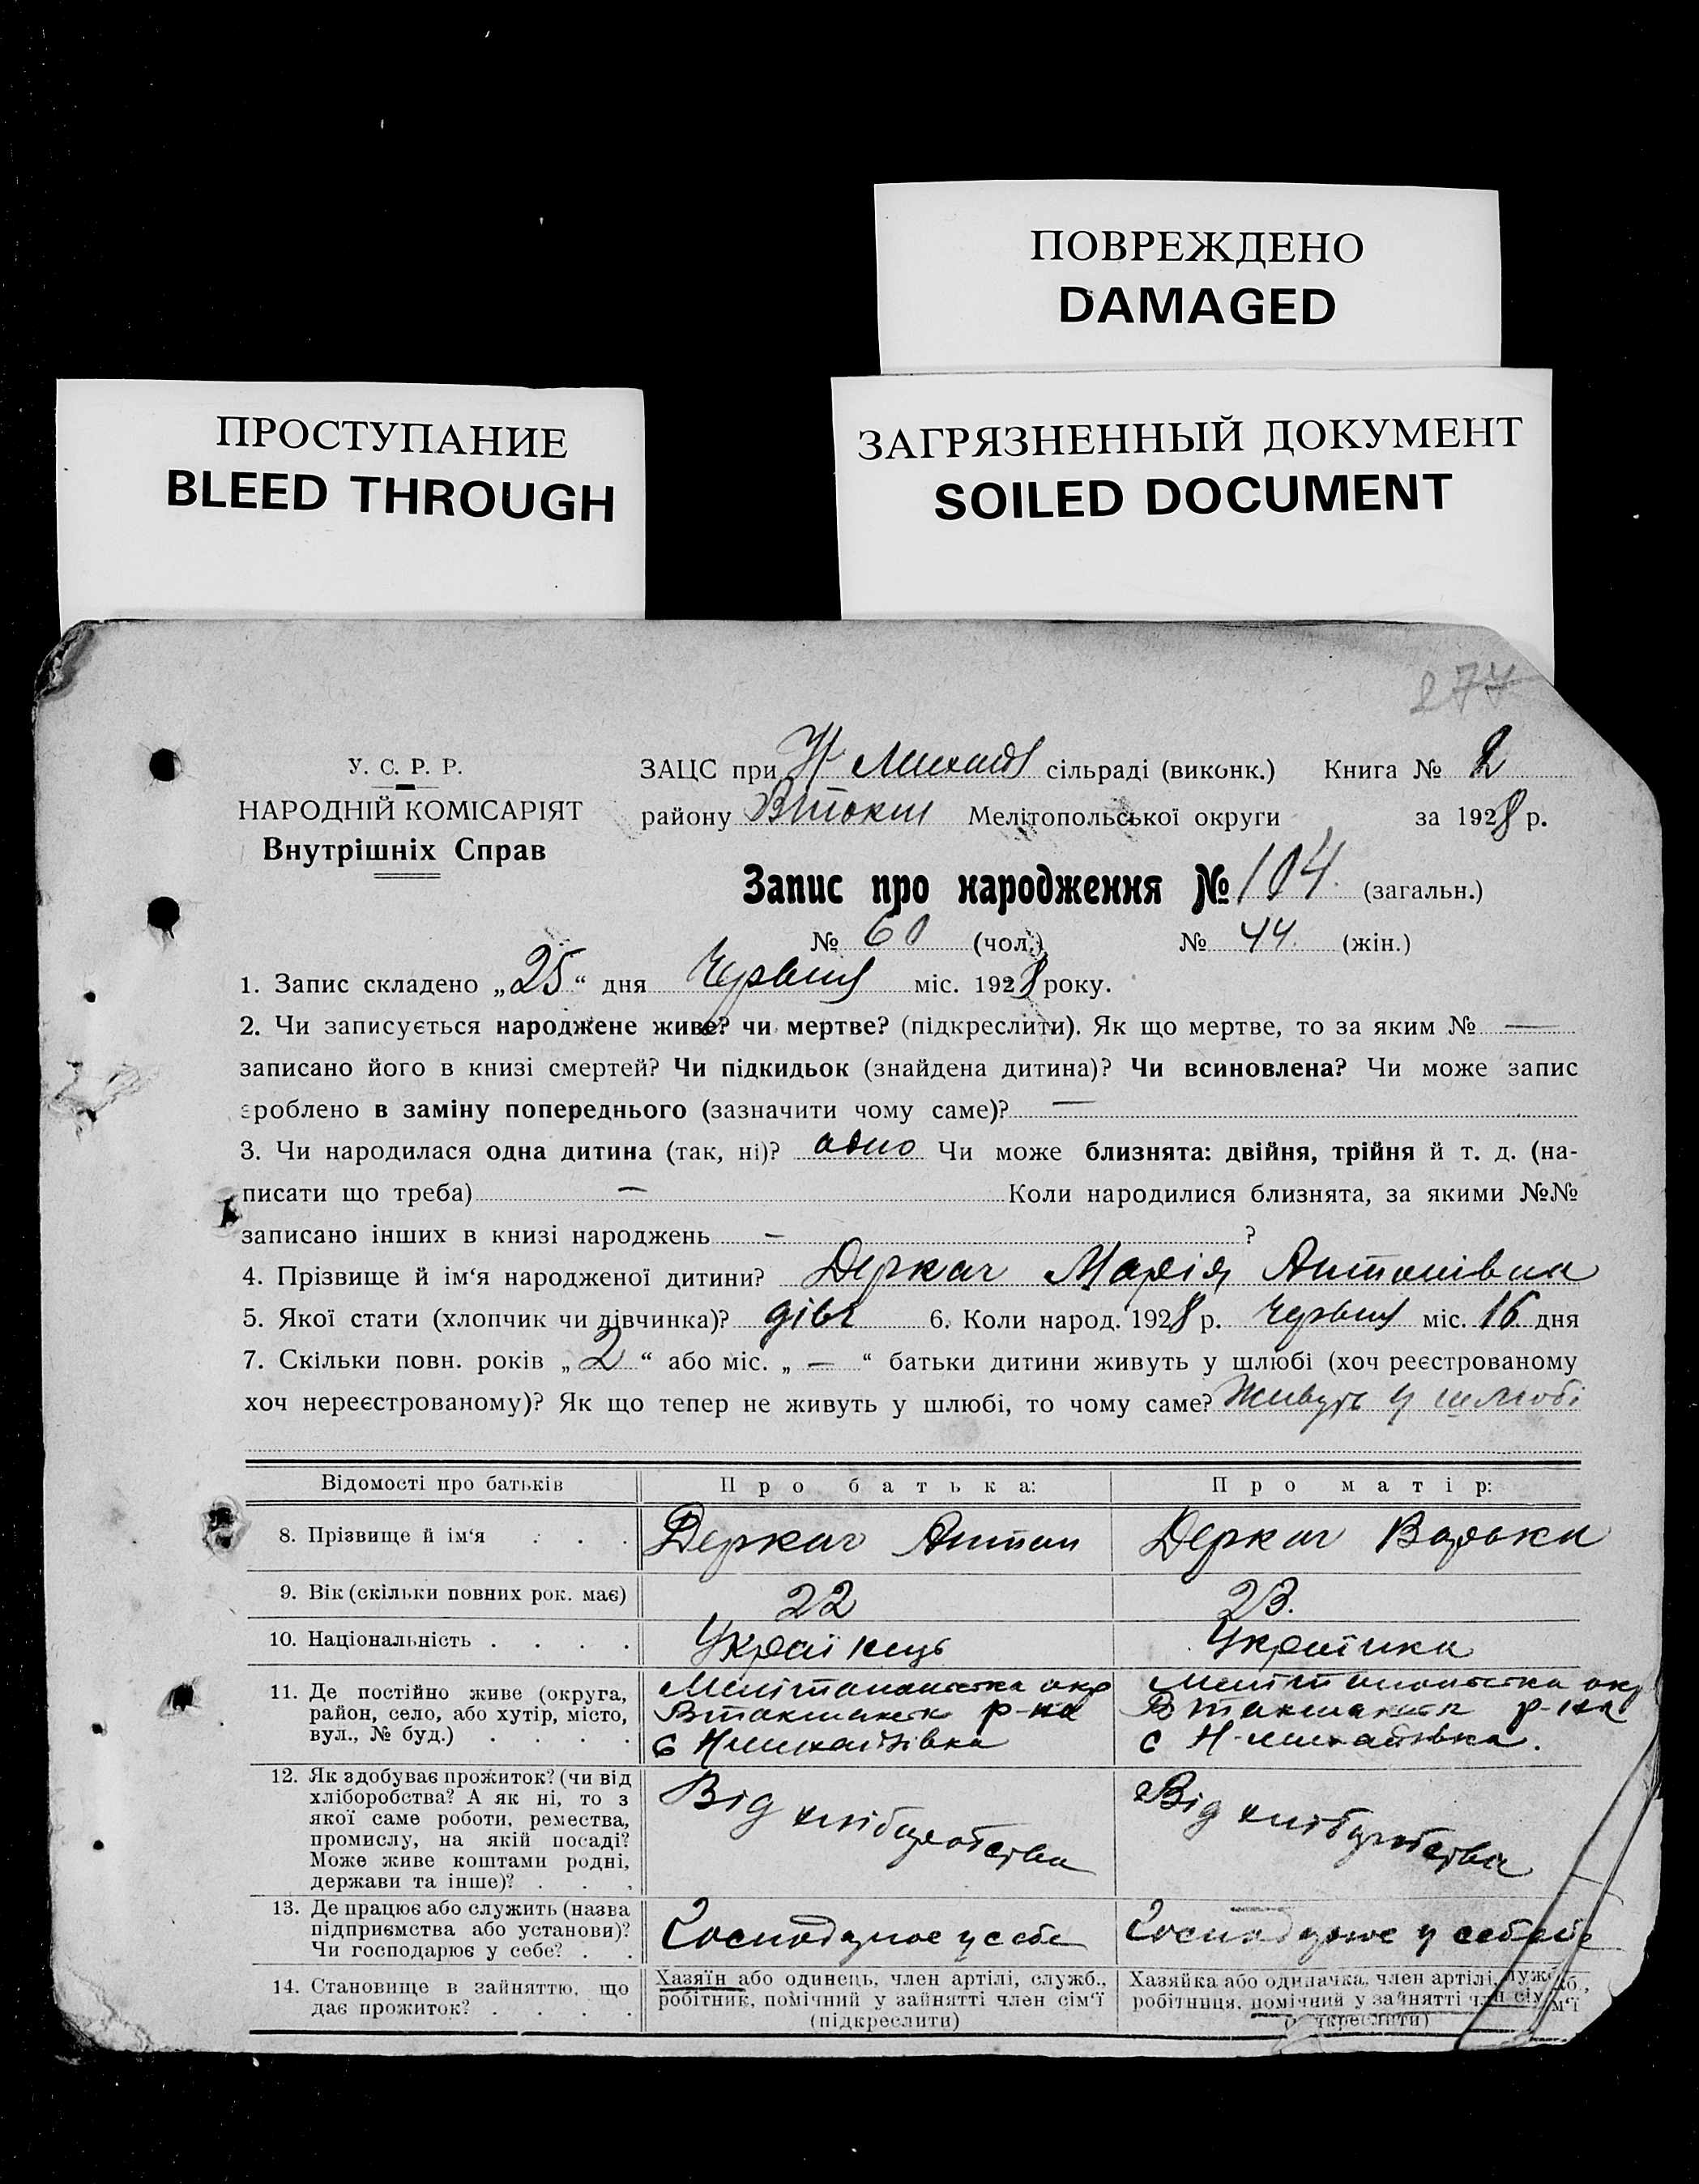 ПОВРЕЖДЕНО
DAMAGED
ПРОСТУПАНИЕ
BLEED THROUGH
ЗАГРЯЗНЕННЫЙ ДОКУМЕНТ
SOILED DOCUMENT
277
У. С. Р. Р.
НАРОДНІЙ КОМІСАРІЯТ
Внутрішніх Справ
ЗАЦС при Н Михайл сільраді (виконк.) Книга № 2
району Втокм Мелітопольської округи за 1928 р.
Запис про народження № 104. (загальн.)
№ 60 (чол.) № 44. (жін.)
1. Запис складено „25“ дня Червня міс. 1928 року.
2. Чи записується народжене живе? чи мертве? (підкреслити). Як що мертве, то за яким № —
записано його в книзі смертей? Чи підкидьок (знайдена дитина)? Чи всиновлена? Чи може запис
зроблено в заміну попереднього (зазначити чому саме)? —
3. Чи народилася одна дитина (так, ні)? одно Чи може близнята: двійня, трійня й т. д. (на-
писати що треба) — Коли народилися близнята, за якими №№
записано інших в книзі народжень — ?
4. Прізвище й ім‘я народженої дитини? Деркач Марія Антонівна
5. Якої стати (хлопчик чи дівчинка)? дівч 6. Коли народ. 1928 р. Червня міс. 16 дня
7. Скільки повн. років „2“ або міс. „—“ батьки дитини живуть у шлюбі (хоч реєстрованому
хоч нереєстрованому)? Як що тепер не живуть у шлюбі, то чому саме? Живуть у шлюбі
Відомості про батьків Про батька: Про матір:
8. Прізвище й ім‘я . . . Деркач Антон Деркач Варька
9. Вік (скільки повних рок. має) 22 23.
10. Національність . . . . Українець Українка
11. Де постійно живе (округа,
район, село, або хутір, місто,
вул., № буд.) . . . .
Мелітопольська окр
Втокмакськ р-на
с Н михайлівка
Мелітопольська окр
Втокмакськ р-на
с Н-михайлівка.
12. Як здобуває прожиток? (чи від
хліборобства? А як ні, то з
якої саме роботи, ремества,
промислу, на якій посаді?
Може живе коштами родні,
держави та інше)? . . .
Від хліборобства
Від хліборобства
13. Де працює або служить (назва
підприємства або установи)?
Чи господарює у себе? . .
Господарює у себе
Господарює у себе
14. Становище в зайняттю, що
дає прожиток? . . . .
Хазяїн або одинець, член артілі, служб.,
робітник, помічний у зайнятті член сім‘ї
(підкреслити)
Хазяйка або одиначка, член артілі, служб.,
робітниця, помічний у зайнятті член сім‘ї
(підкреслити)